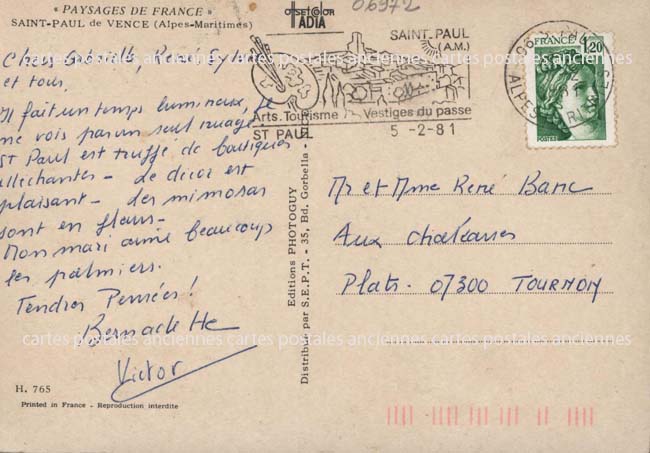 « PAYSAGES DE FRANCE »
SAINT-PAUL de VENCE (Alpes-Maritimes)
Chers Gabrielle, René, Sylvie
et tous.
Il fait un temps lumineux, je
ne vois pas un seul nuage.
St Paul est truffé de boutiques
alléchantes - Le décor est
plaisant - Les mimosas
sont en fleurs -
Mon mari aime beaucoup
les palmiers.
Tendres Pensées !
Bernadette
Victor
H. 765
Printed in France - Reproduction interdite
OFFSETCOLOR
IADIA
06972
Editions PHOTOGUY
Distribué par S.E.P.T. - 35, Bd. Gorbella -
SAINT-PAUL
(A.M.)
Arts. Tourisme Vestiges du passe
ST PAUL 5-2-81
FRANCE
1,20
POSTES
Mr et Mme René Banc
Aux chataniers
Plats. 07300 TOURNON
cartes postales anciennes cartes postales anciennes cartes postales anciennes